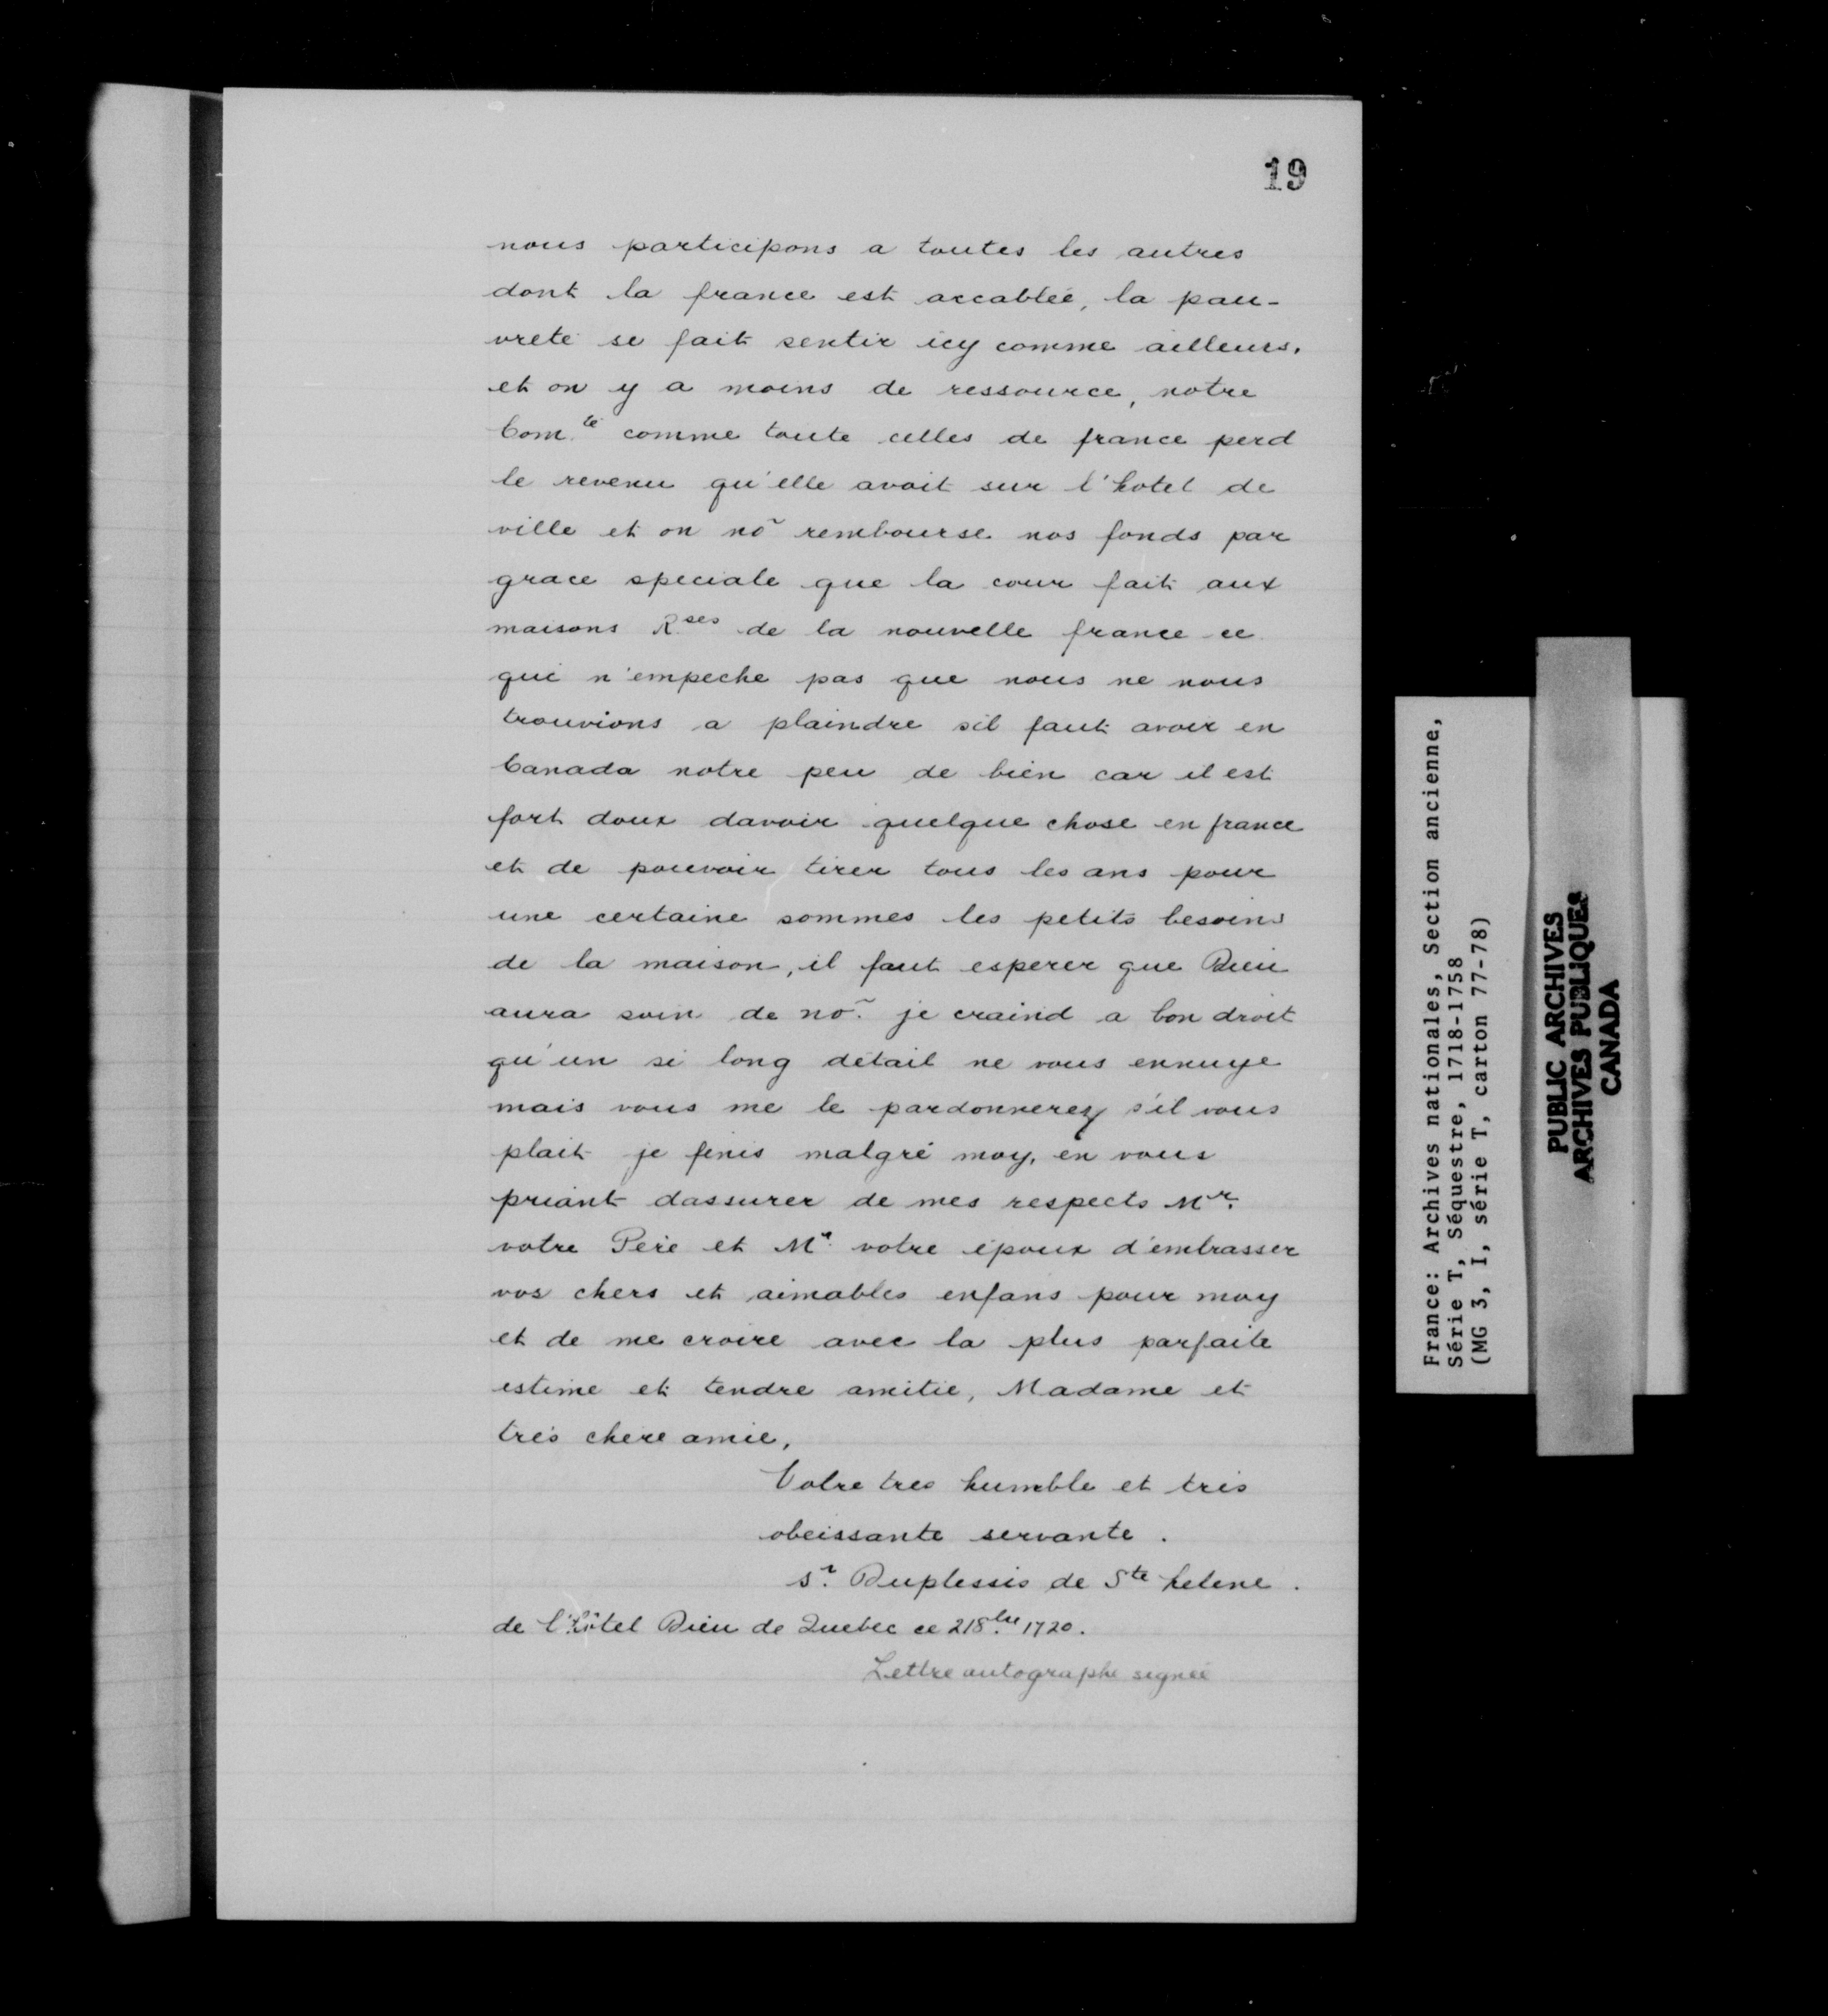 19
nous participons a toutes les autres
dont la france est accablée, la pau-
vreté se fait sentir icy comme ailleurs.
et on y a moins de ressource, notre
Com.té comme toute celles de france perd
le revenu qu'elle avoit sur l'hotel de
ville et on nõ rembourse nos fonds par
grace speciale que la cour fait aux
maisons R.ses de la nouvelle france ce
qui n'empeche pas que nous ne nous
trouvions a plaindre sil faut avoir en
Canada notre peu de bien car il est
fort doux davoir quelque chose en france
et de pouvoir tirer tous les ans pour
une certaine sommes les petits besoins
de la maison, il faut esperer que Dieu
aura soin de nõ. je craind a bon droit
qu'un si long détail ne vous ennuye
mais vous me le pardonnerez s'il vous
plait je finis malgré moy, en vous
priant dassurer de mes respects Mr.
votre Pere et Mr. votre époux d'embrasser
vos chers et aimables enfans pour moy
et de me croire avec la plus parfaite
estime et tendre amitié, Madame et
trés chere amie,
Votre tres humble et trés
obeissante servante.
Sr. Duplessis de Ste helene.
de l'hôtel Dieu de Quebec ce 21 8.bre 1720.
Lettre autographe signée
France: Archives nationales, Section ancienne,
Série T, Séquestre, 1718-1758
(MG 3, I, série T, carton 77-78)
PUBLIC ARCHIVES
ARCHIVES PUBLIQUES
CANADA